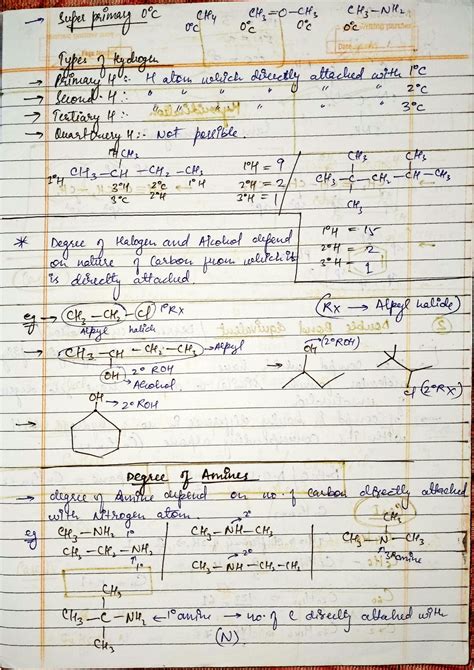 → Super primary 0°C CH4 CH3-O-CH3 CH3-NH2
0°C 0°C 0°C 0°C
Types of Hydrogen
→ Primary H:- H atom which directly attached with 1°C
→ Second H:- " " " " " " 2°C
→ Tertiary H:- " " " " " " 3°C
→ Quarternery H:- Not possible.
CH3
1°H CH3-CH-CH2-CH3
3°H 2°C 1°H
3°C 2°H
1°H = 9
2°H = 2
3°H = 1
CH3 CH3
CH3-C-CH2-CH-CH3
CH3
1°H = 15
2°H = 2
3°H = 1
* Degree of Halogen and Alcohol depend
on nature of Carbon from which it
is directly attached
eg → CH3-CH2-Cl 1°RX
Alpyl halide
(RX → Alpyl halide)
→ CH3-CH-CH2-CH3 → Alpyl
OH 2° ROH
→ Alcohol
OH (2°ROH)
→
Cl (2°RX)
→ OH → 2°ROH
Degree of Amines
→ degree of Amine depend on no. of carbon directly attached
with Nitrogen atom.
eg CH3-NH2 1°
CH3-CH2-NH2
1°
CH3-NH-CH3 2°
CH3-NH-CH2-CH3 2°
CH3
CH3-N-CH3
3°amine
CH3
CH3-C-NH2 ← 1°amine → no. of C directly attached with
CH3 (N).